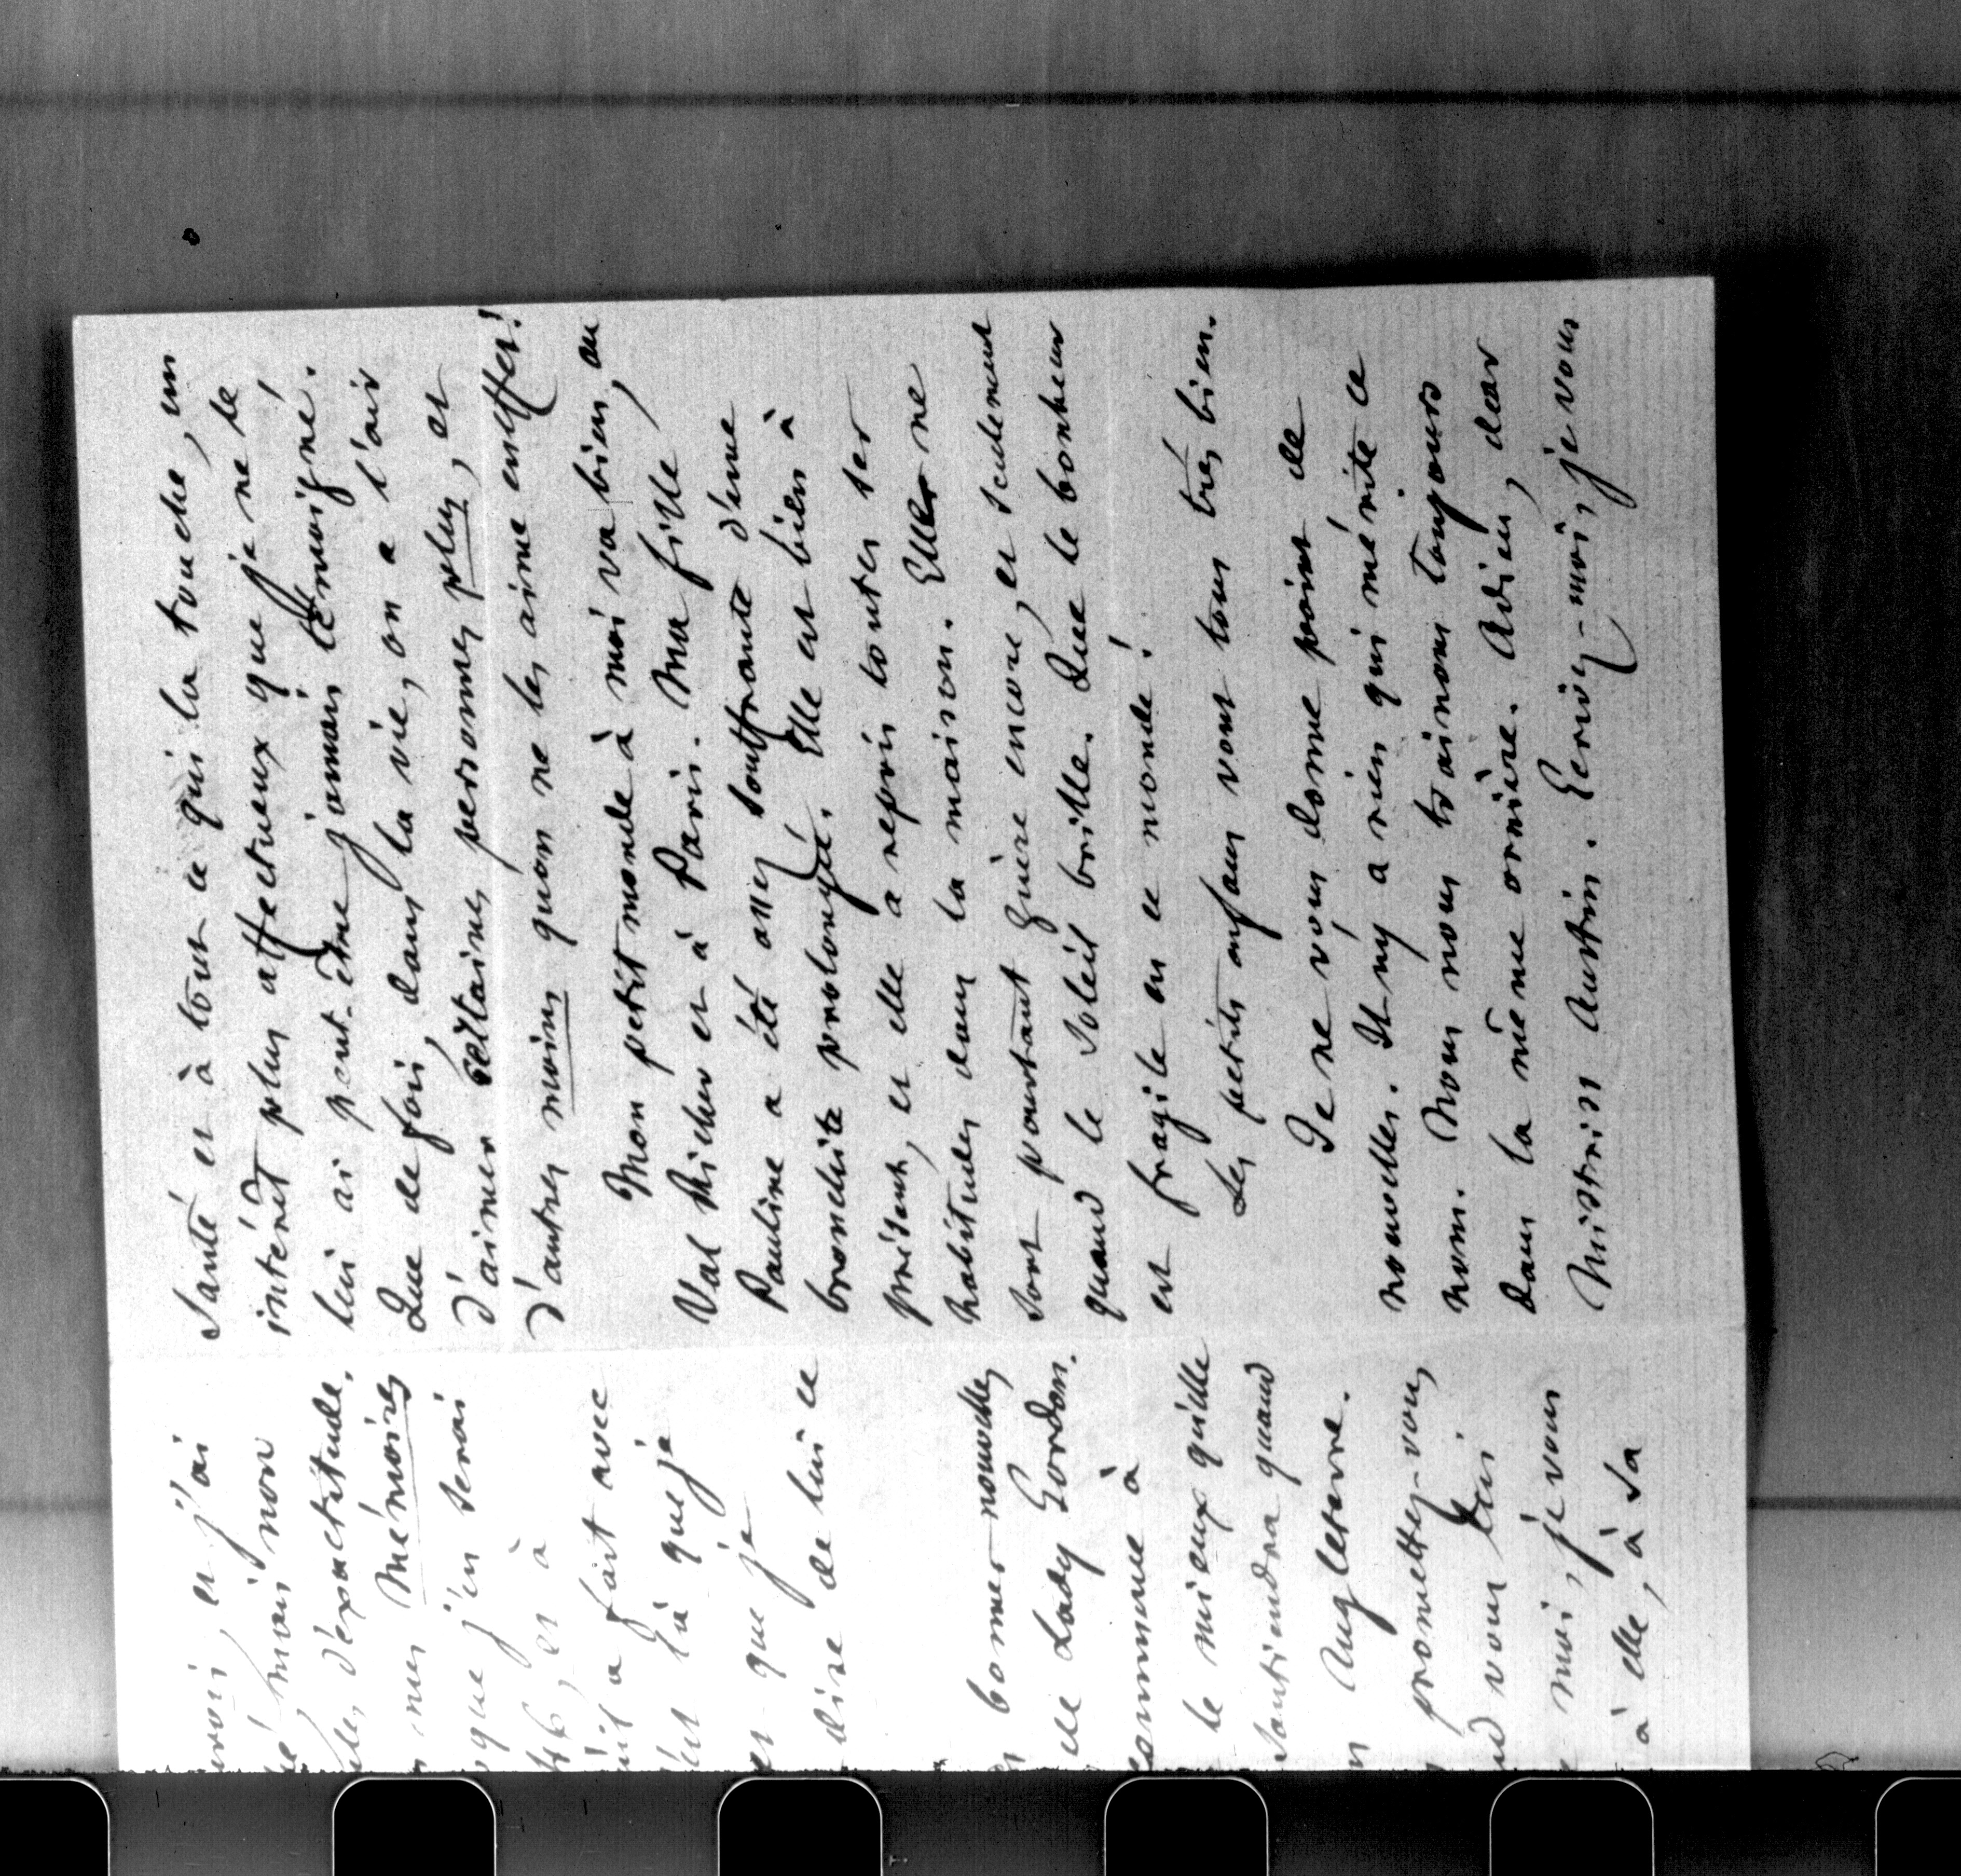 urois, et j'ai
né, mais non
ule, d'exactitude.
mes Mémoires
que j'en serai
46, et à
uil a fait avec
que je
et que je
dire de lui ce
bonnes nouvelles
de Lady Gordon.
commune à
le mieux qu'elle
Soutiendra quand
n Angleterre.
promettez-vous,
nd vous lui
moi, je vous
à elle, à sa
Santé et à tout ce qui la touche, un
intérêt plus affectueux que je ne le
lui ai peut-être jamais témoigné.
Que de fois, dans la vie, on a l'air
d'aimer certaines personnes plus, et
d'autres moins qu'on ne les aime en effet!
Mon petit monde à moi va bien, au
Val Richer et à Paris. Ma fille
Pauline a été assez souffrante d'une
bronchite prolongée. Elle est bien à
présent, et elle a repris toutes ses
habitudes dans la maison. Elle ne
sort pourtant guère encore, et seulement
quand le soleil brille. Que le bonheur
est fragile en ce monde!
Les petits enfans vont tous très bien.
Je ne vous donne point de
nouvelles. Il n'y a rien qui mérite ce
nom. Nous nous traînons toujours
dans la même ornière. Adieu, dear
Mistriss Austin. Ecrivez-moi, je vous